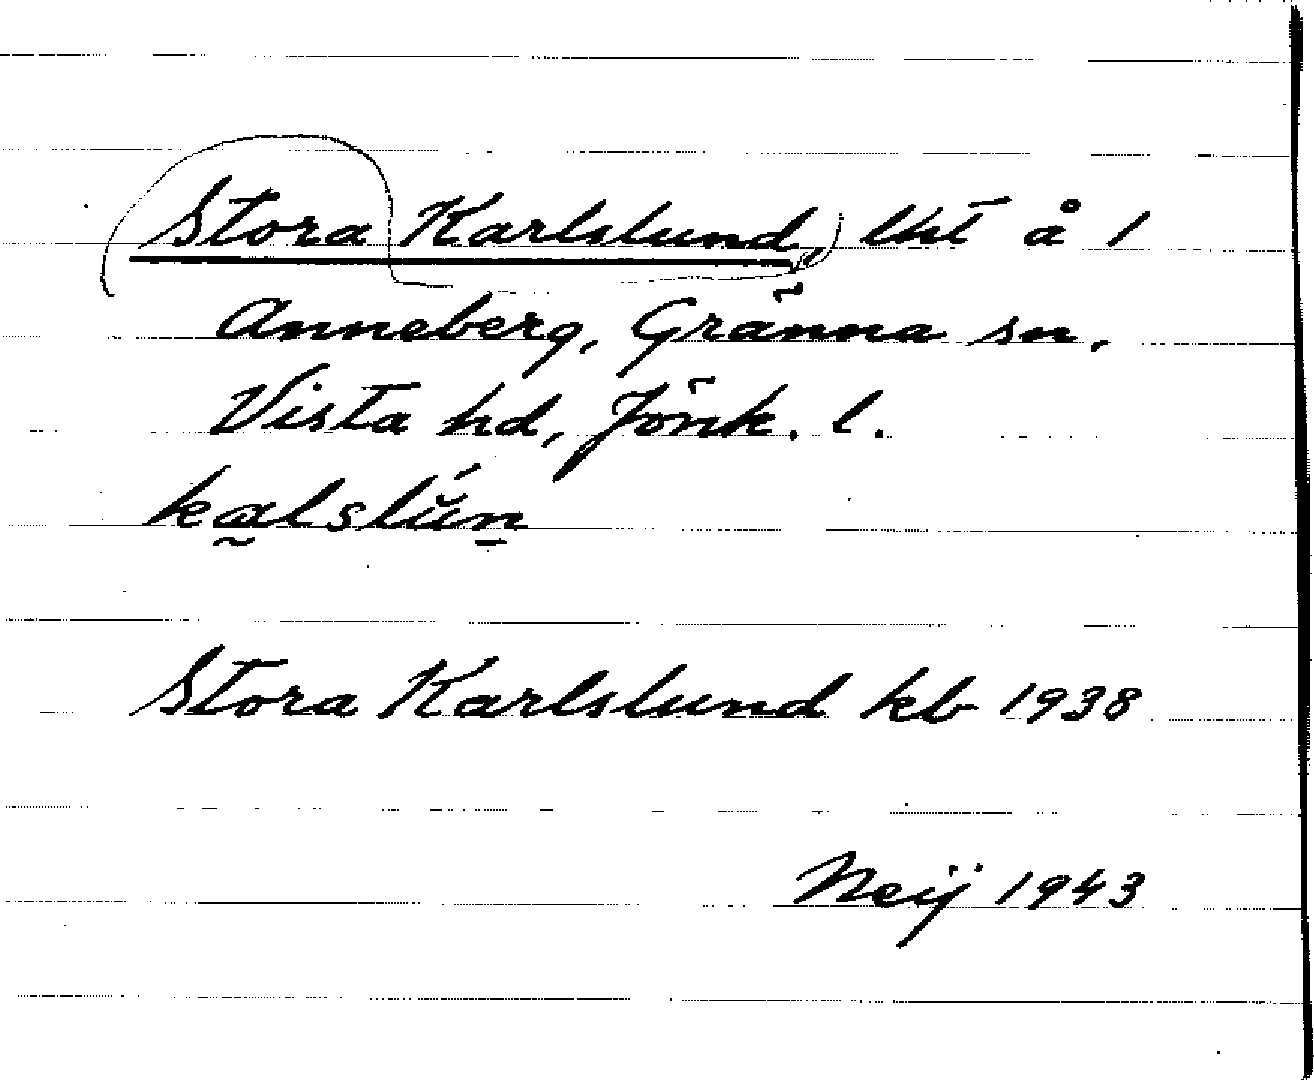 Stora Karlslund, lht å 1
Anneberg, Gränna sn,
Vista hd, Jönk. l.
Stora Karlslund kb 1938
Neij 1943